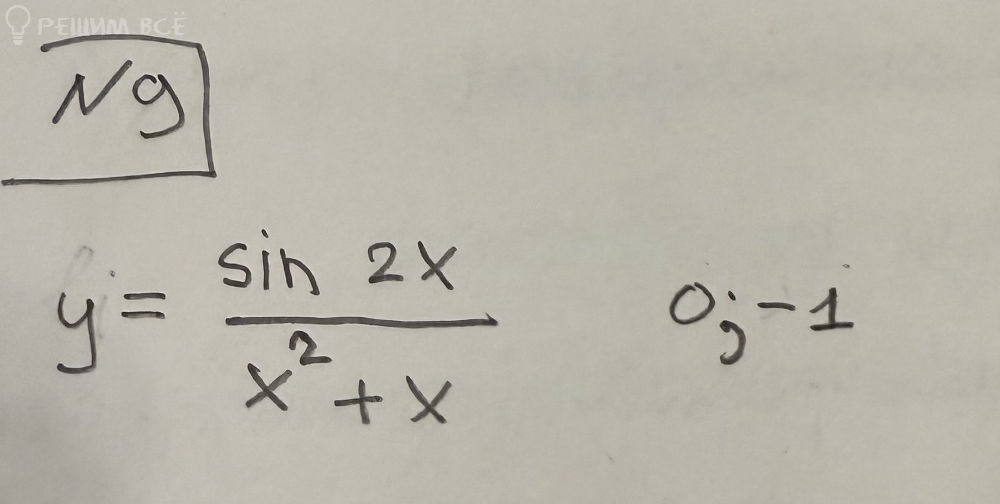 РЕШИМ ВСЁ
N9
y = \frac{sin 2x}{x² + x} 0; -1